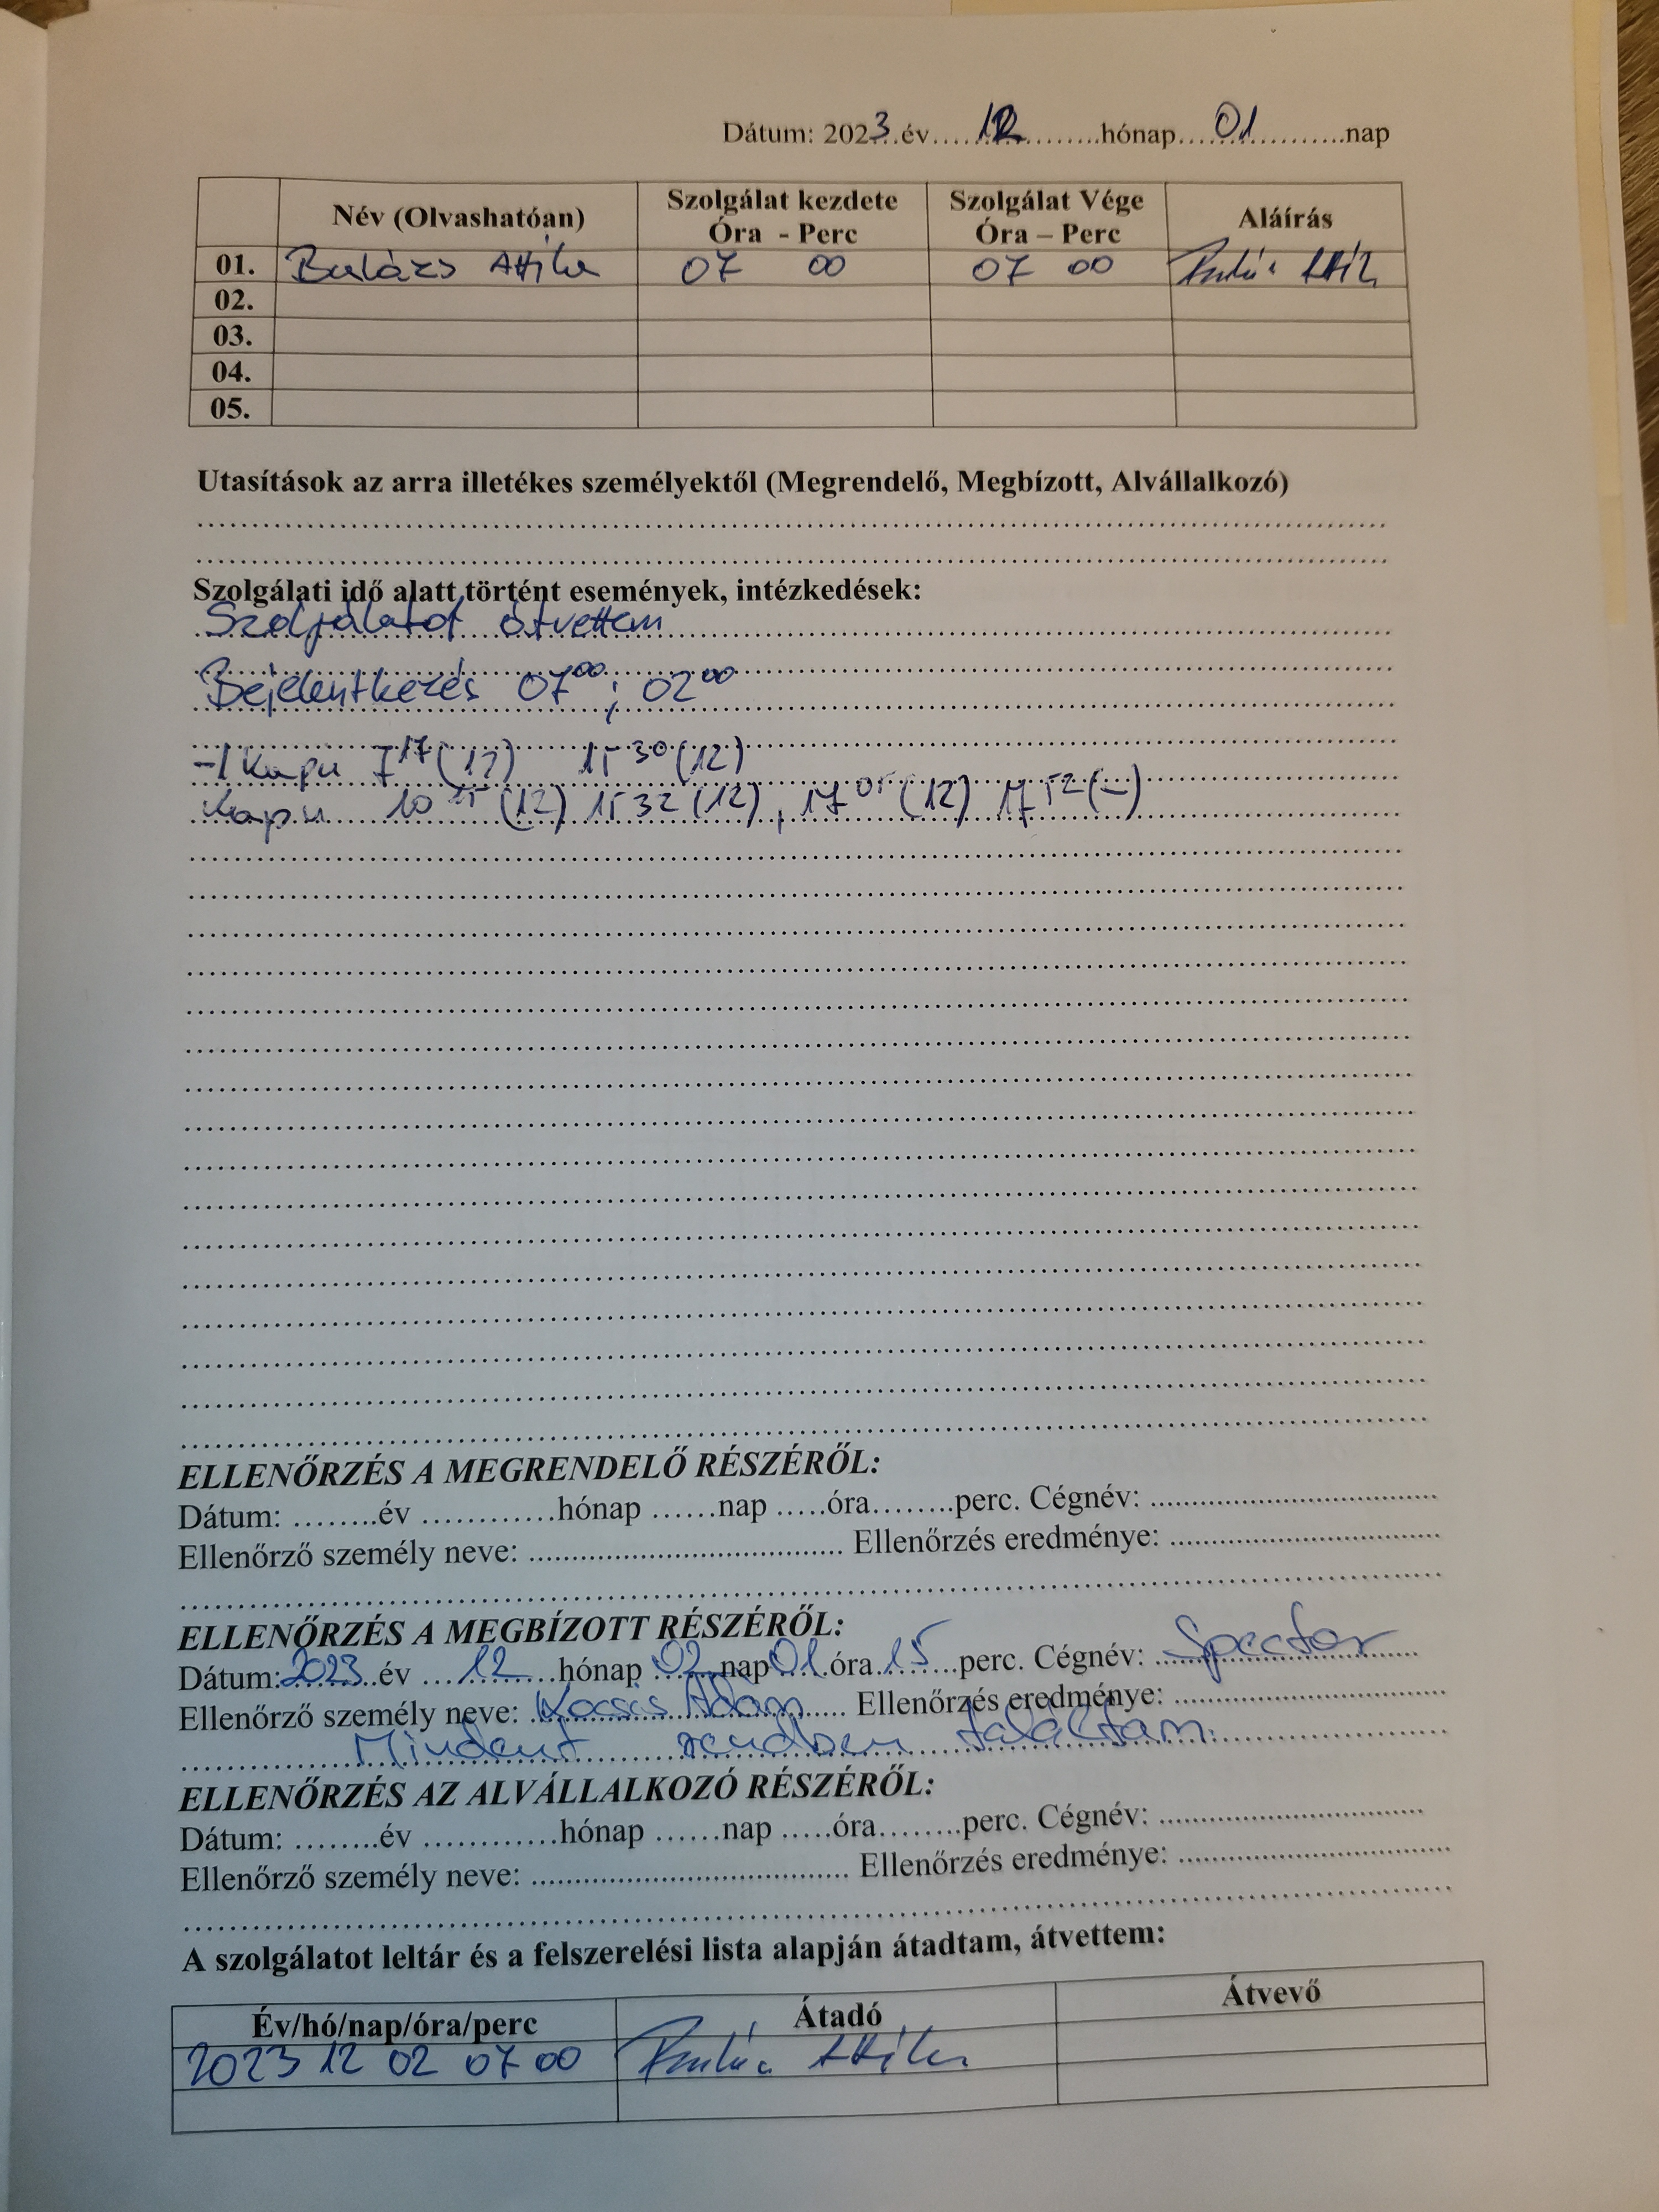 Dátum: 2023.év....12.........hónap....01..........nap
Név (Olvashatóan) Szolgálat kezdete Óra - Perc Szolgálat Vége Óra – Perc Aláírás
01. Balázs Attila 07 00 07 00
02.
03.
04.
05.
Utasítások az arra illetékes személyektől (Megrendelő, Megbízott, Alvállalkozó)
Szolgálati idő alatt történt események, intézkedések:
Szolgálatot átvettem
Bejelentkezés 07⁰⁰; 02⁰⁰
-1 Kapu 7¹⁷(12) 15³⁰(12)
Kapu 10¹⁵(12) 15³²(12), 17⁰⁵(12) 17⁵²(-)
ELLENŐRZÉS A MEGRENDELŐ RÉSZÉRŐL:
Dátum: ........év ............hónap ......nap .....óra........perc. Cégnév: ..........
Ellenőrző személy neve: .......... Ellenőrzés eredménye: ..........
ELLENŐRZÉS A MEGBÍZOTT RÉSZÉRŐL:
Dátum: 2023 év 12 hónap 02 nap 01 óra 15 perc. Cégnév: Spector
Ellenőrző személy neve: Kocsis Ádám Ellenőrzés eredménye: ..........
Mindent rendben találtam.
ELLENŐRZÉS AZ ALVÁLLALKOZÓ RÉSZÉRŐL:
Dátum: ........év ............hónap ......nap .....óra........perc. Cégnév: ..........
Ellenőrző személy neve: .......... Ellenőrzés eredménye: ..........
A szolgálatot leltár és a felszerelési lista alapján átadtam, átvettem:
Év/hó/nap/óra/perc Átadó Átvevő
2023 12 02 07 00 Attila